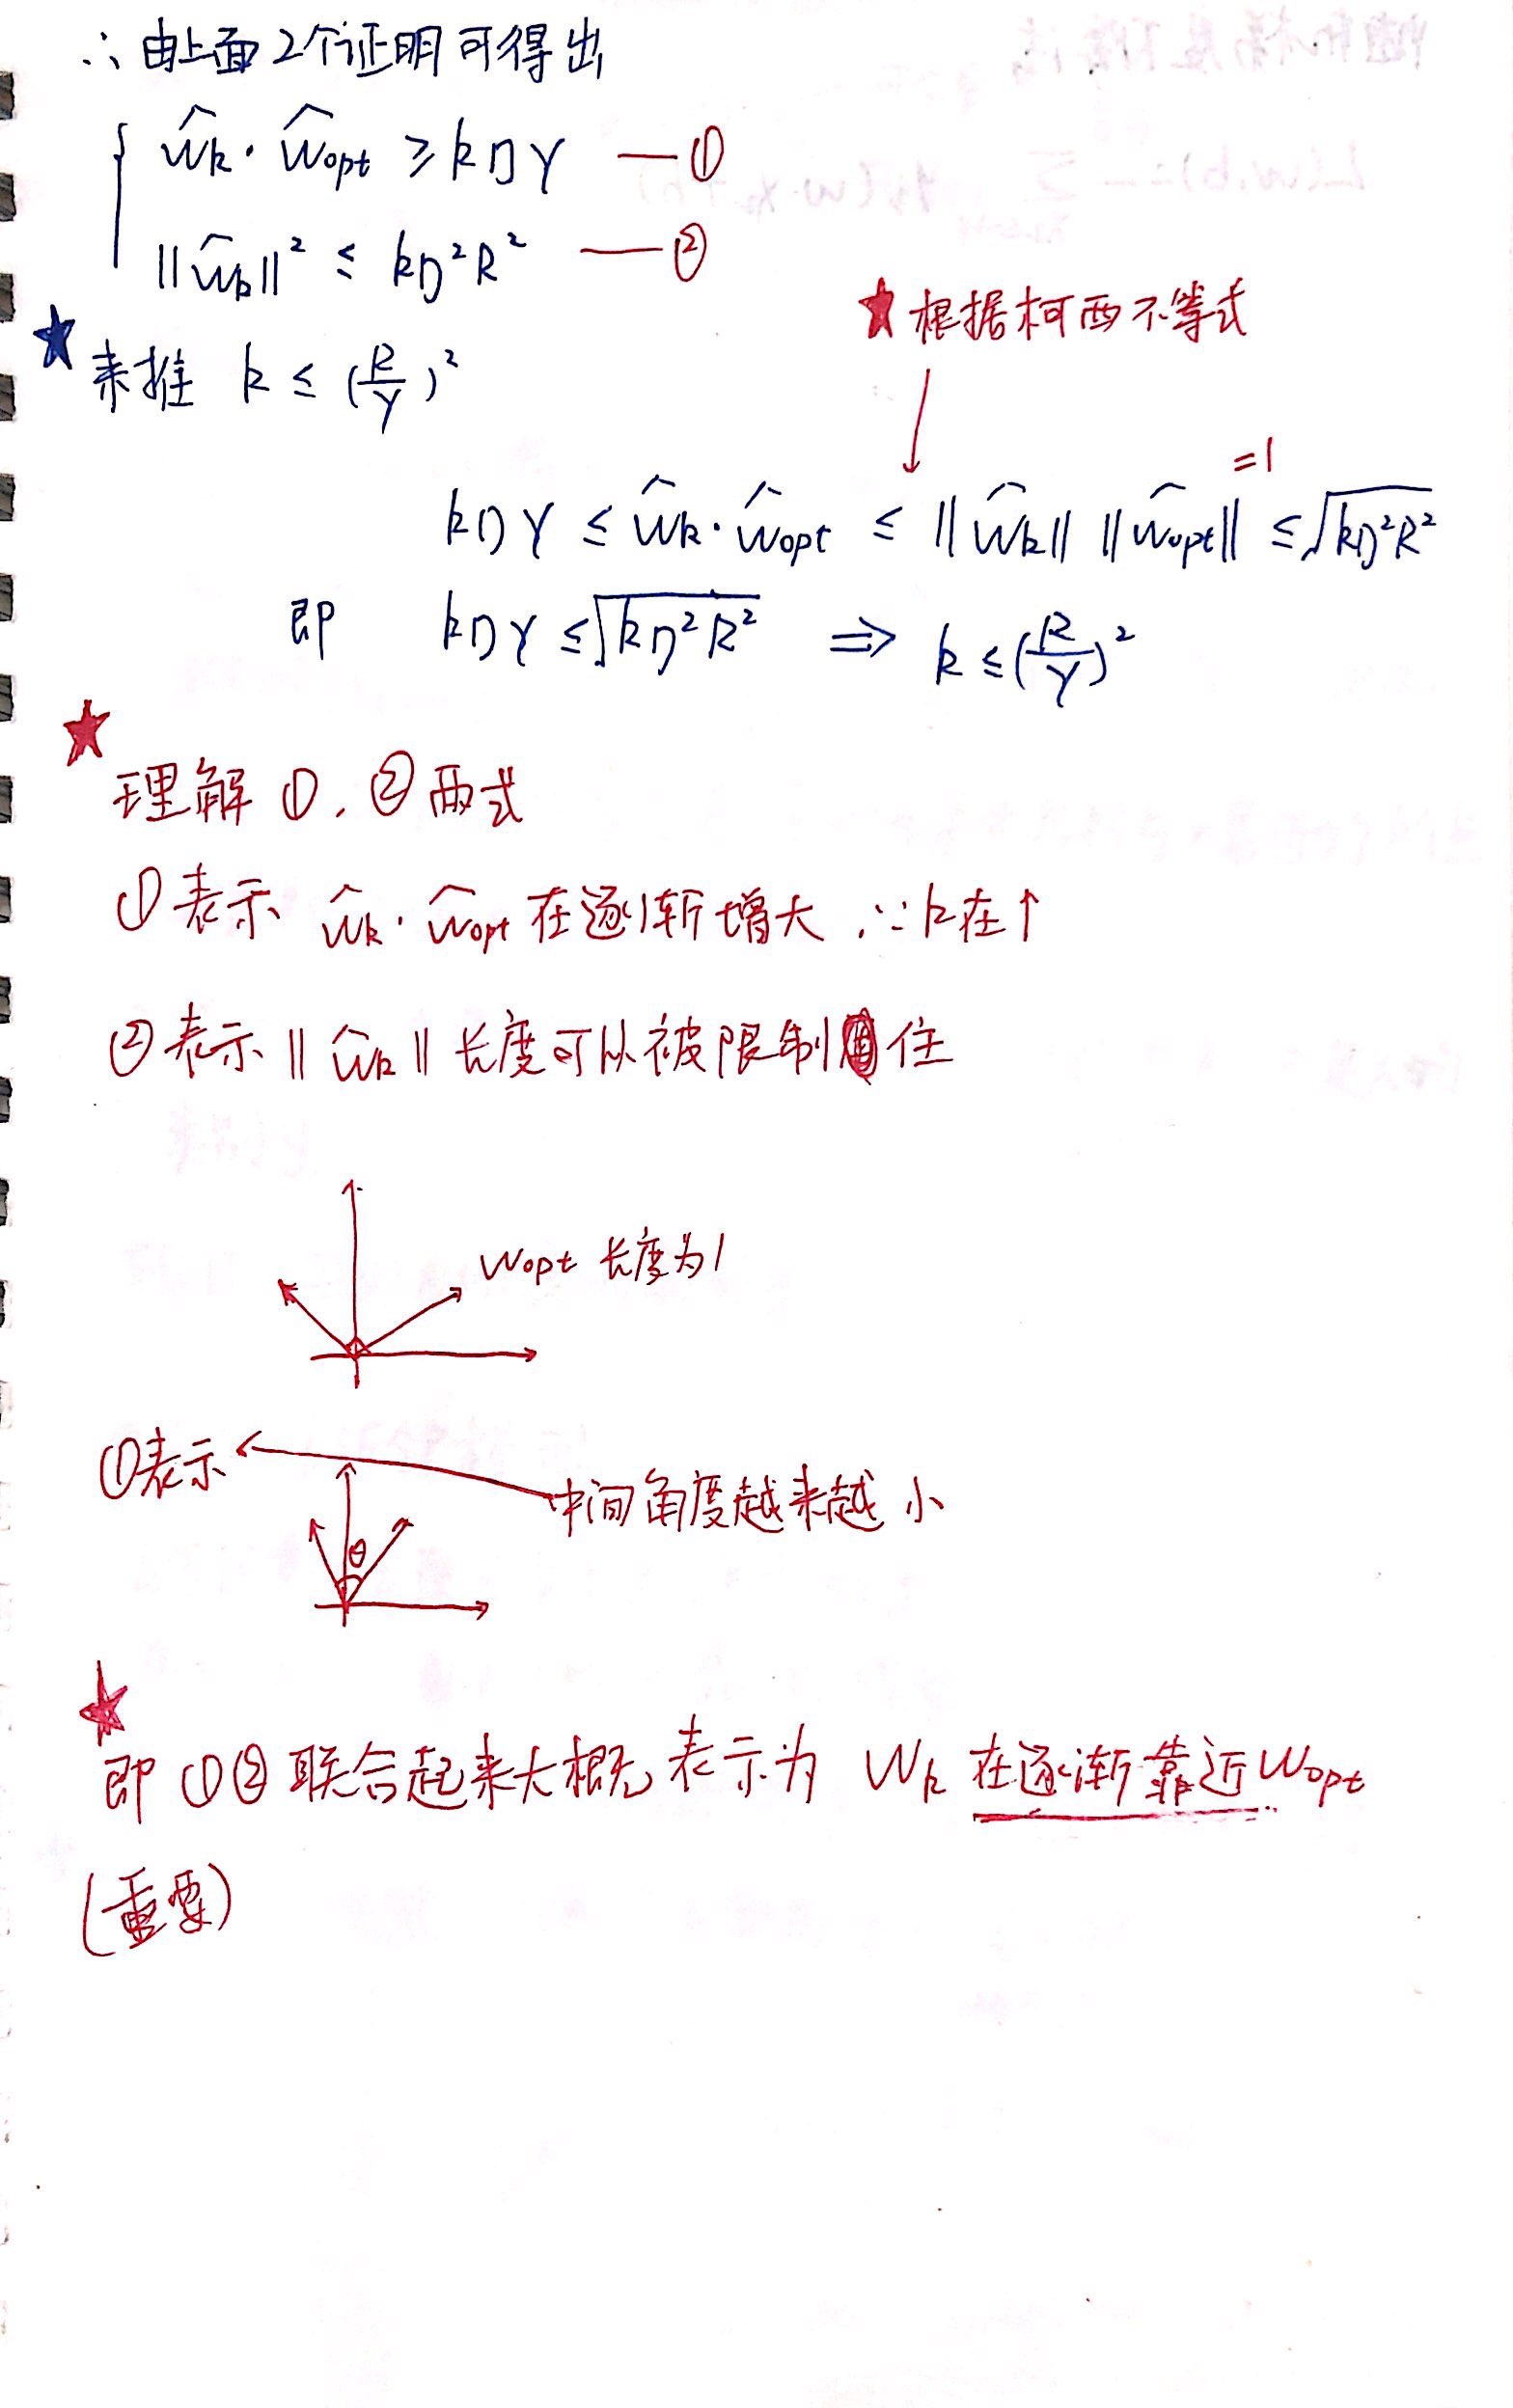 ∴ 由上面2个证明可得出
ŵk · ŵopt ≥ kηγ —①
||ŵk||² ≤ kη²R² —②
★来推 k ≤ (R/γ)²
★根据柯西不等式
=1
kηγ ≤ ŵk · ŵopt ≤ ||ŵk|| ||ŵopt|| ≤ √(kη²R²)
即 kηγ ≤ √(kη²R²) ⇒ k ≤ (R/γ)²
★
理解①,②两式
①表示 ŵk · ŵopt 在逐渐增大 ∵ k在↑
②表示 ||ŵk|| 长度可以被限制住
wopt 长度为1
①表示
中间角度越来越小
θ
★
即①②联合起来大概表示为 Wk 在逐渐靠近 Wopt
(重要)